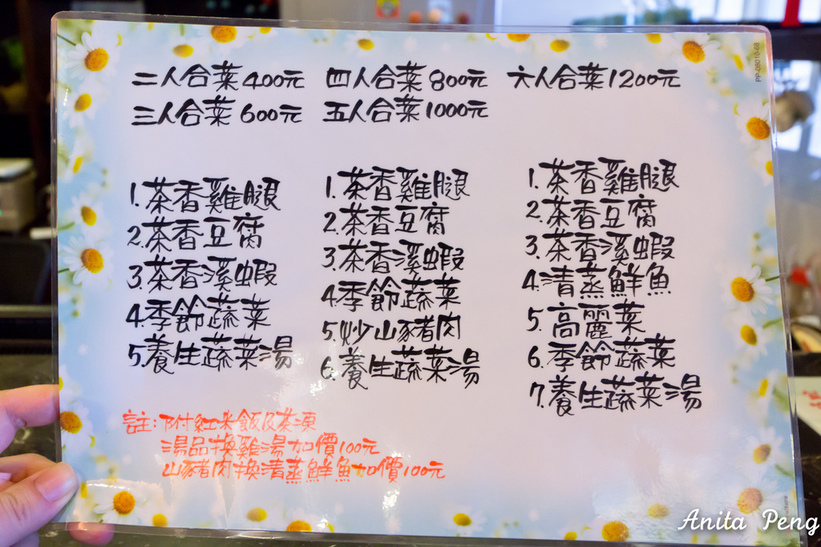 二人合菜400元
三人合菜600元
1.茶香雞腿
2.茶香豆腐
3.茶香溪蝦
4.季節蔬菜
5.養生蔬菜湯
四人合菜800元
五人合菜1000元
1.茶香雞腿
2.茶香豆腐
3.茶香溪蝦
4.季節蔬菜
5.炒山豬肉
6.養生蔬菜湯
六人合菜1200元
1.茶香雞腿
2.茶香豆腐
3.茶香溪蝦
4.清蒸鮮魚
5.高麗菜
6.季節蔬菜
7.養生蔬菜湯
註:附紅米飯及茶凍
湯品換雞湯加價100元
山豬肉換清蒸鮮魚加價100元
Anita Peng